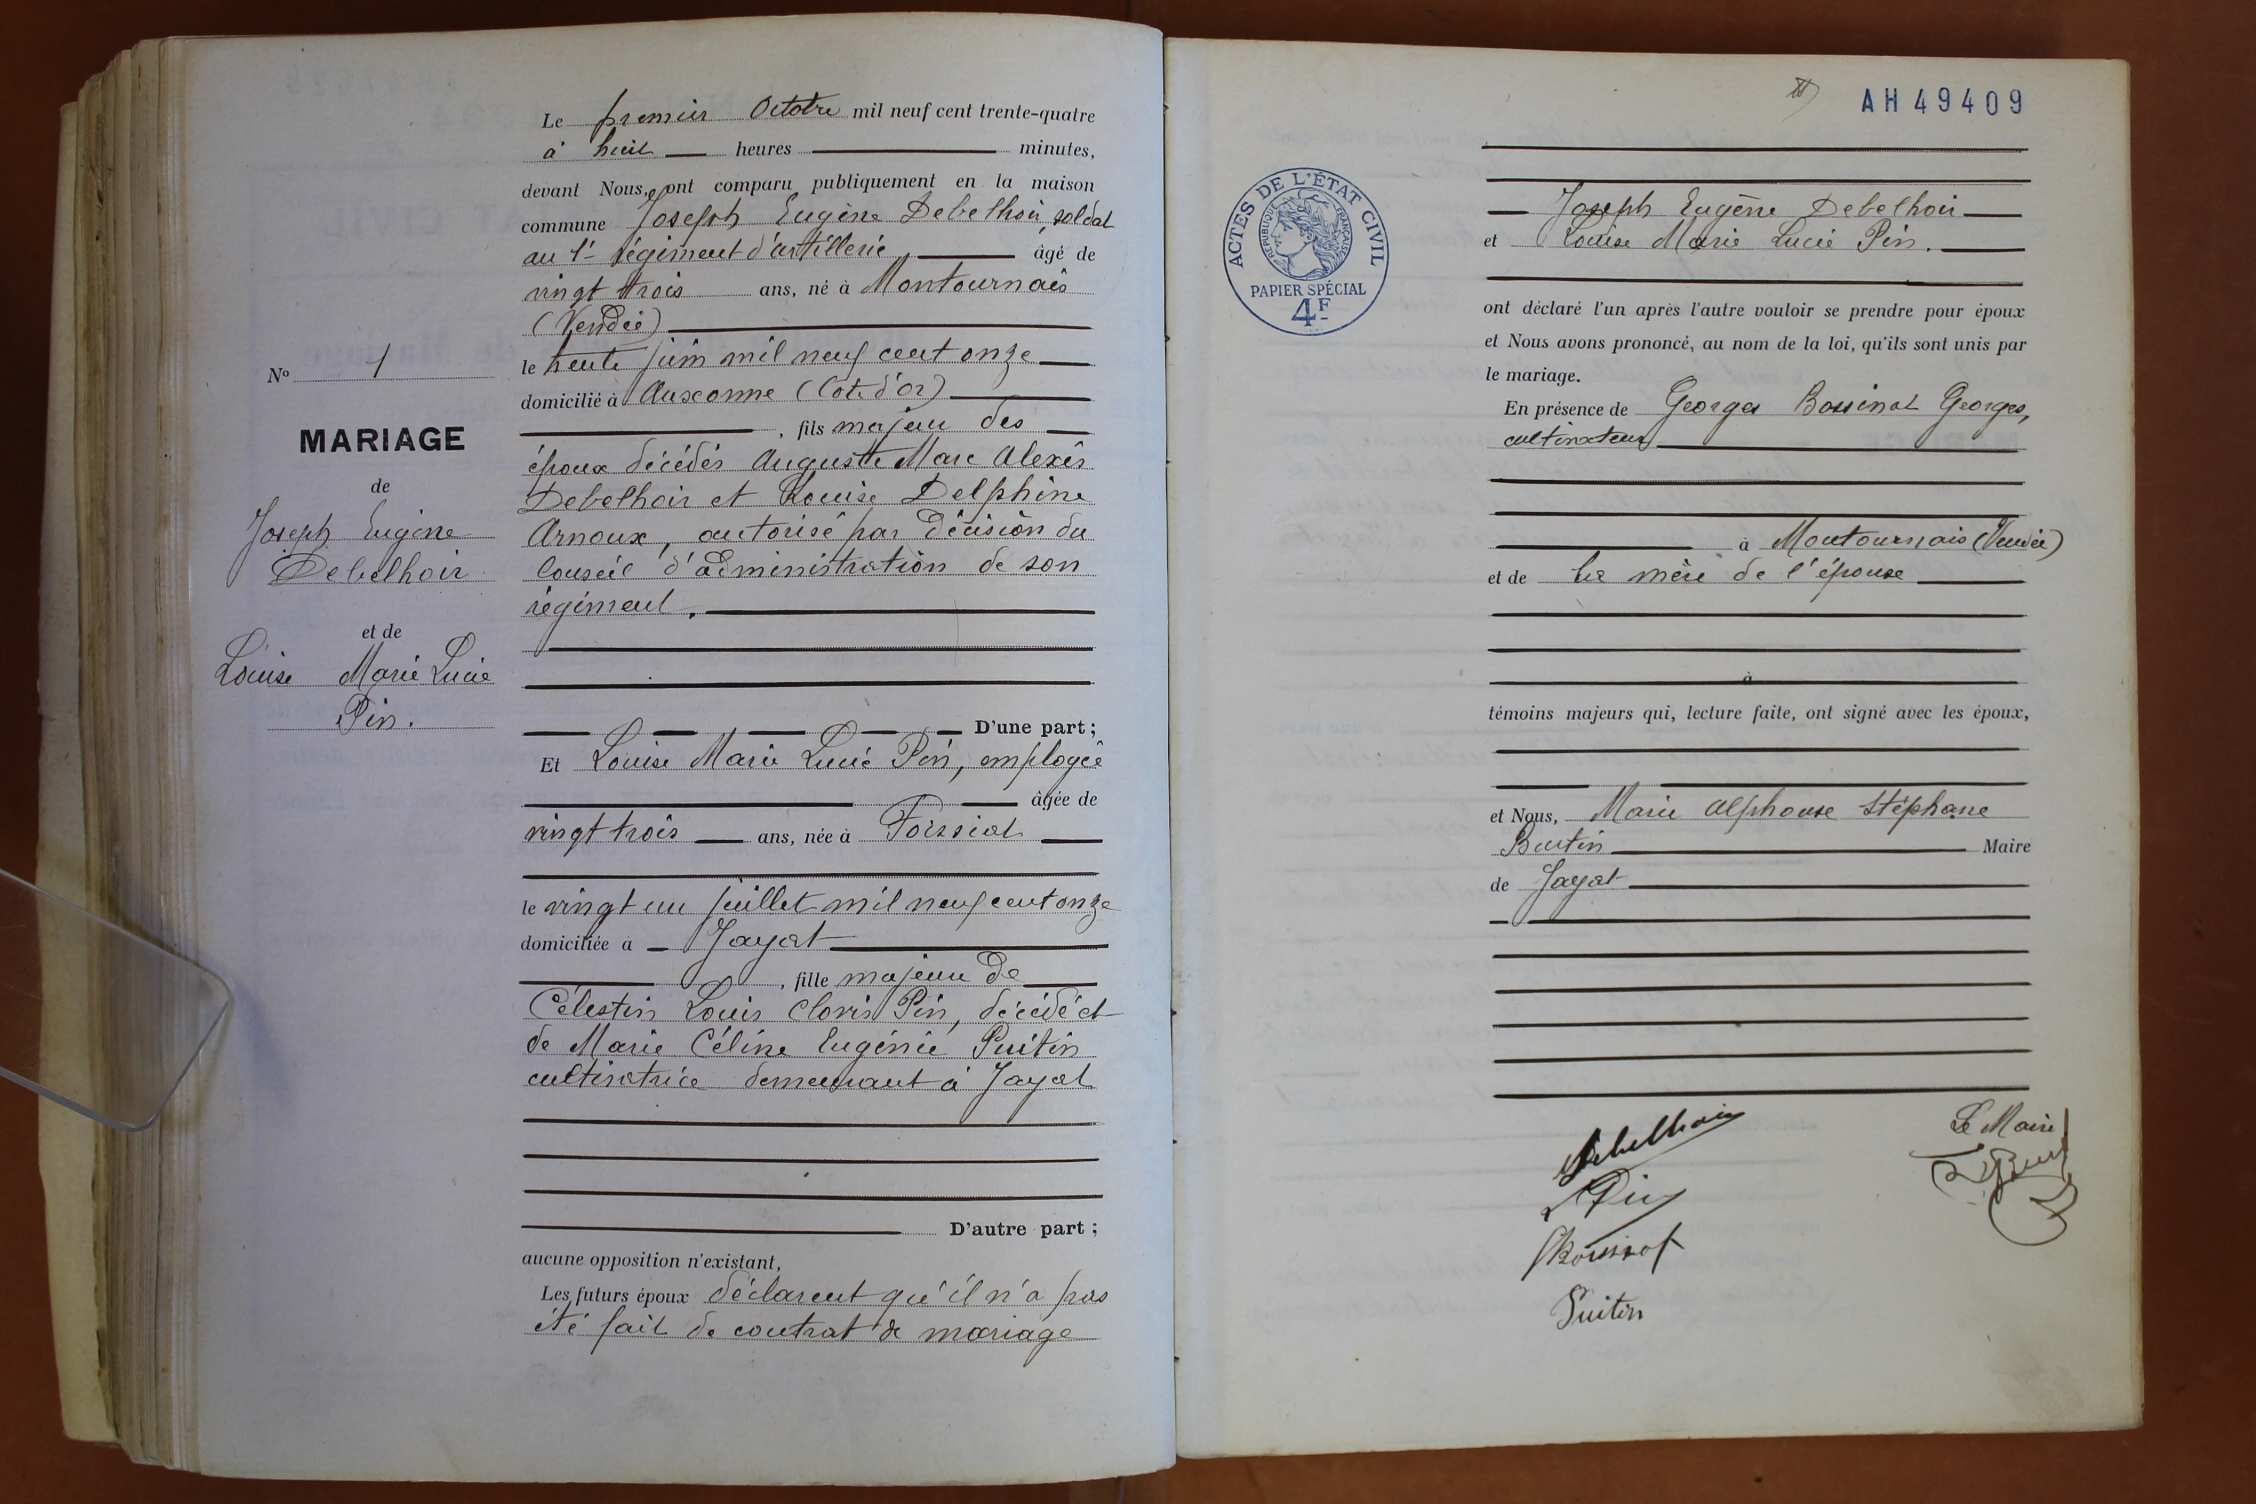 Le premier Octobre mil neuf cent trente-quatre
à huit heures minutes,
devant Nous, ont comparu publiquement en la maison
commune Joseph Eugène Debelhoir, soldat
au 1er régiment d'artillerie âgé de
vingt trois ans, né à Montournais
(Vendée)
le trente juin mil neuf cent onze
domicilié à Auxonne (Cote d'Or)
, fils majeur des
époux décédés Auguste Marc Alexis
Debelhoir et Louise Delphine
Arnoux, autorisé par décision du
Conseil d'administration de son
régiment.
D'une part ;
Et Louise Marie Lucie Pin, employée
âgée de
vingt trois ans, née à Foissiat
le vingt un juillet mil neuf cent onze
domiciliée à Jayat
, fille majeure de
Célestin Louis Clovis Pin, décédé et
de Marie Céline Eugénie Puitin
cultivatrice demeurant à Jayat
D'autre part ;
aucune opposition n'existant,
Les futurs époux déclarent qu'il n'a pas
été fait de contrat de mariage
No 1
MARIAGE
de
Joseph Eugène
Debelhoir
et de
Louise Marie Lucie
Pin.
AH 49409
ACTES DE L'ÉTAT CIVIL
RÉPUBLIQUE FRANÇAISE
PAPIER SPÉCIAL
4F
Joseph Eugène Debelhoir
et Louise Marie Lucie Pin.
ont déclaré l'un après l'autre vouloir se prendre pour époux
et Nous avons prononcé, au nom de la loi, qu'ils sont unis par
le mariage.
En présence de Georges Bossinot Georges,
cultivateur
à Montournais (Vendée)
et de la mère de l'épouse
à
témoins majeurs qui, lecture faite, ont signé avec les époux,
et Nous, Marie Alphonse Stéphane
Burtin Maire
de Jayat
Debelhoir
Le Maire
L Pin
Bossinot
Puitin